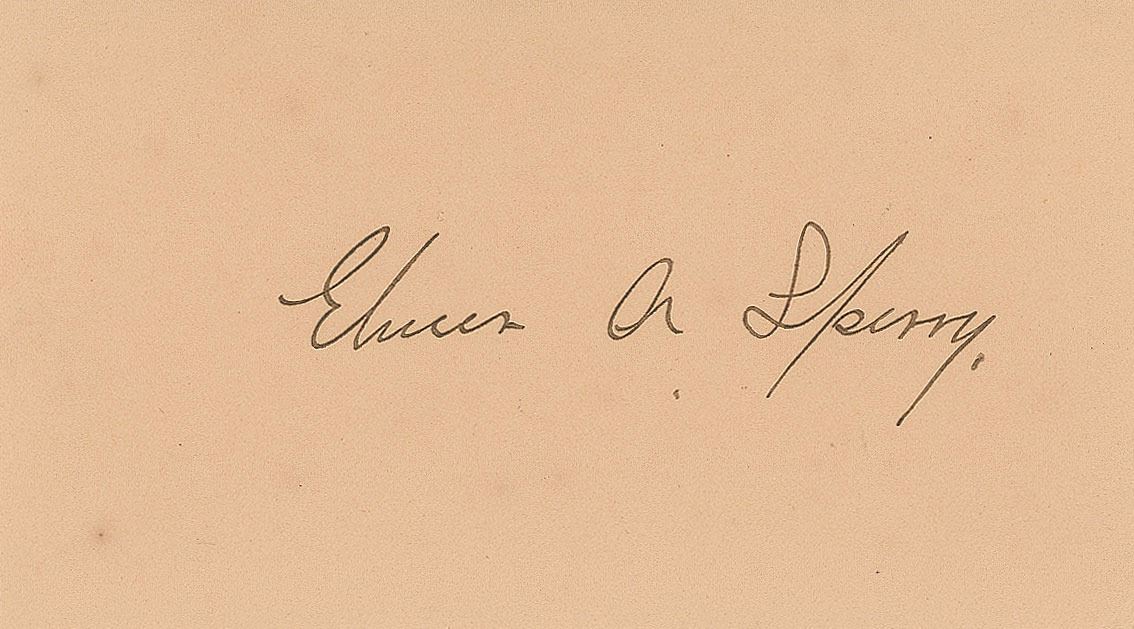 Elmer A. Sperry.